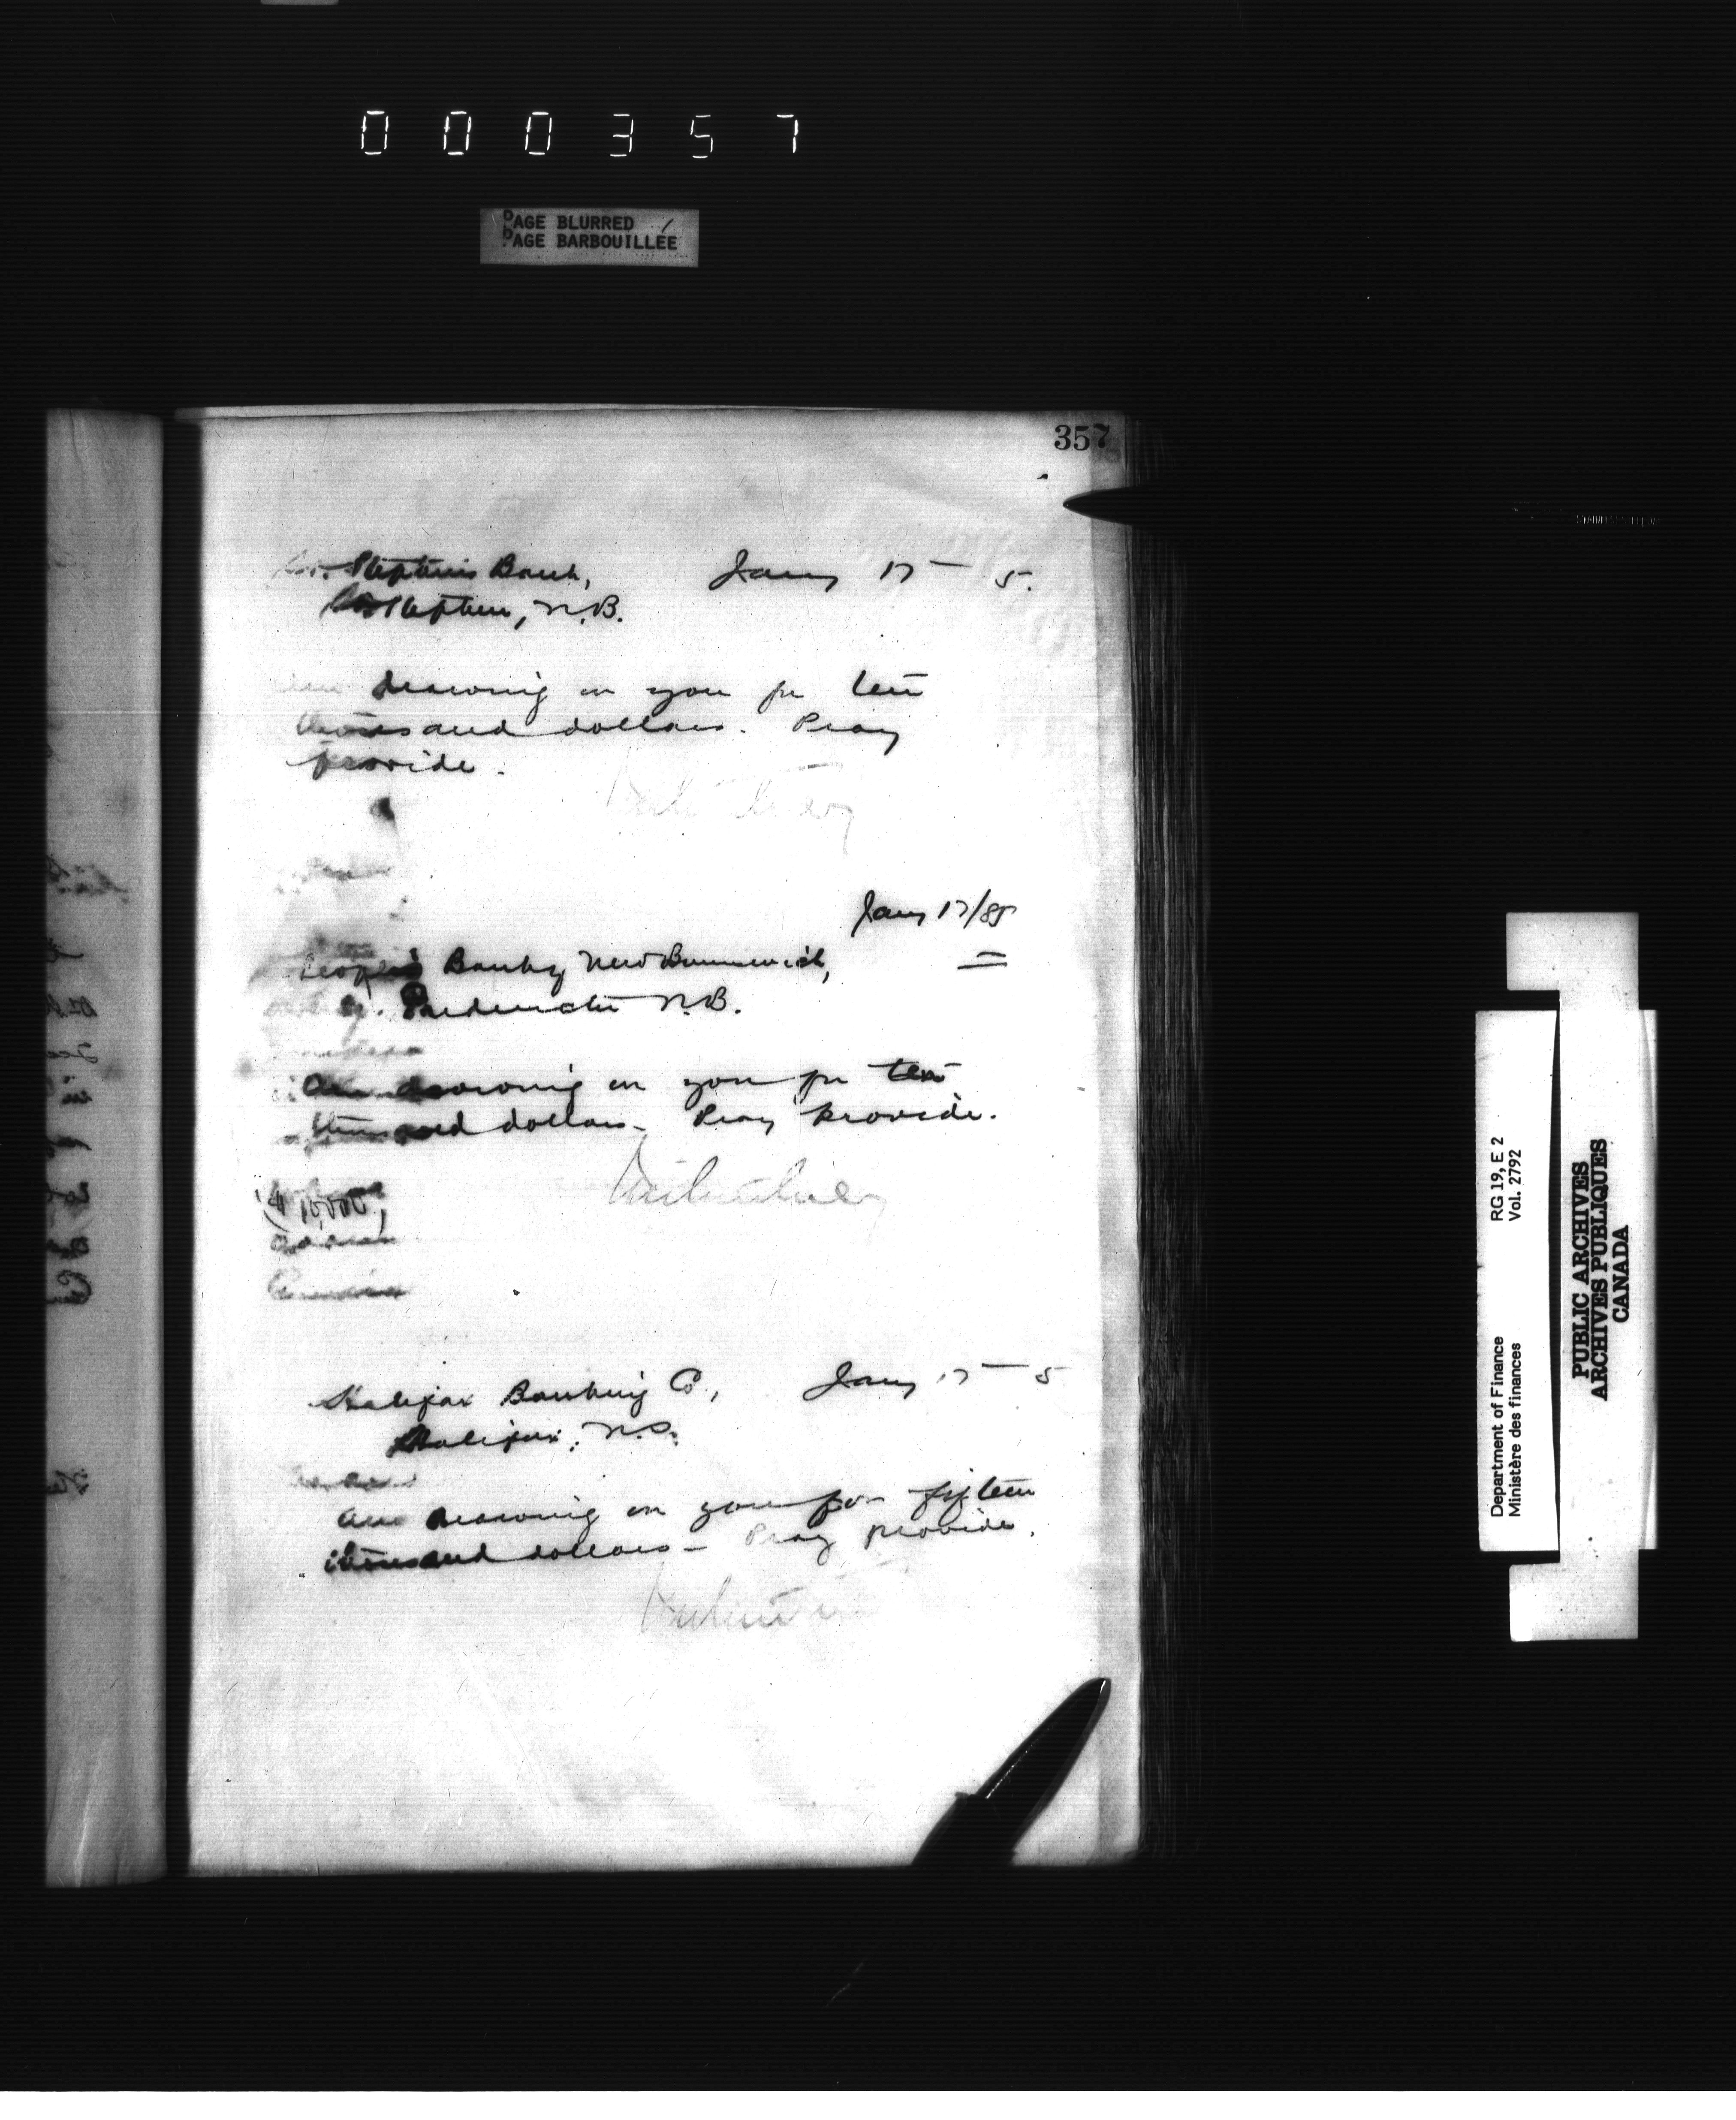 000357
PAGE BLURRED
PAGE BARBOUILLÉE
357
St. Stephens Bank, Jany 17 — 5.
St Stephen, N.B.
Am drawing on you for ten
thousand dollars. Pray
provide.
Jany 17/85
Peoples Bank of New Brunswick,
Fredericton N.B.
Am drawing on you for ten
thousand dollars — Pray provide.
$10,000,
Halifax Banking Co., Jany 17 — 5
Halifax, N.S.
Am drawing on you for fifteen
thousand dollars — Pray provide.
Department of Finance RG 19, E 2
Ministère des finances Vol. 2792
PUBLIC ARCHIVES
ARCHIVES PUBLIQUES
CANADA